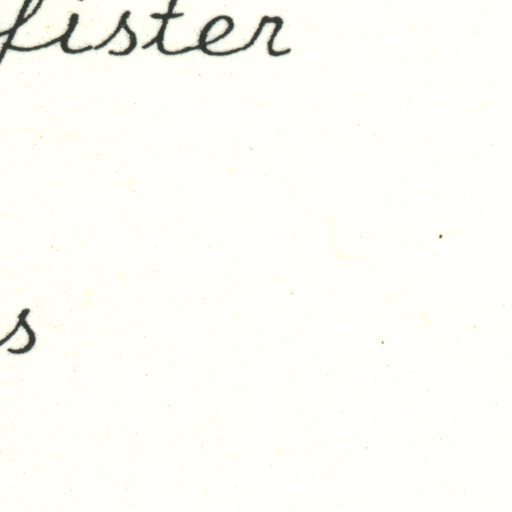 fister
s